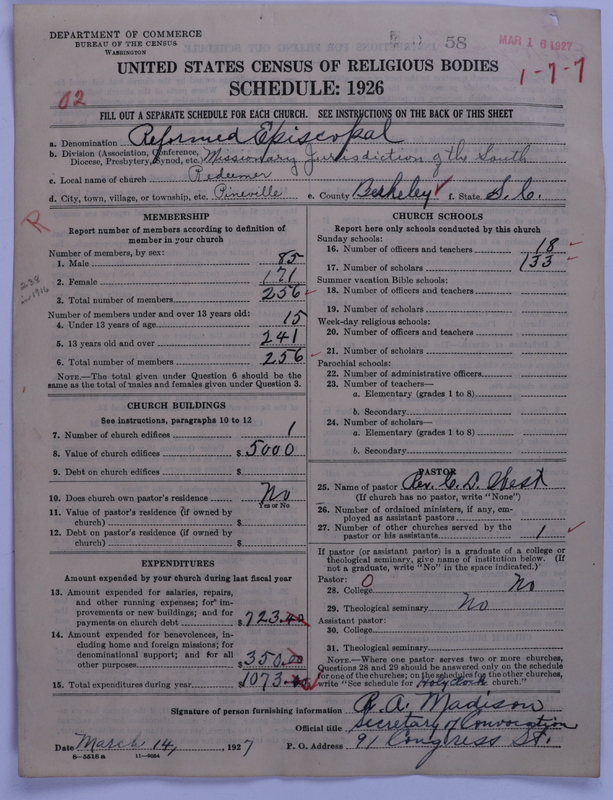 DEPARTMENT OF COMMERCE
BUREAU OF THE CENSUS
WASHINGTON
58
MAR 16 1927
1-7-7
UNITED STATES CENSUS OF RELIGIOUS BODIES
SCHEDULE: 1926
02
FILL OUT A SEPARATE SCHEDULE FOR EACH CHURCH. SEE INSTRUCTIONS ON THE BACK OF THIS SHEET
a. Denomination Reformed Episcopal
b. Division (Association, Conference, Diocese, Presbytery, Synod, etc. Missionary Jurisdiction of the South
c. Local name of church Redeemer
d. City, town, village, or township, etc. Pineville e. County Berkeley f. State S.C.
R
238 in 1916
MEMBERSHIP
Report number of members according to definition of
member in your church
Number of members, by sex:
1. Male 85
2. Female 171
3. Total number of members 256
Number of members under and over 13 years old:
4. Under 13 years of age 15
5. 13 years old and over 241
6. Total number of members 256
NOTE.—The total given under Question 6 should be
same as the total of males and females given under Question 3.
CHURCH BUILDINGS
See instructions, paragraphs 10 to 12
7. Number of church edifices 1
8. Value of church edifices $ 5000
9. Debt on church edifices $
10. Does church own pastor's residence No
Yes or No
11. Value of pastor's residence (if owned by
church) $
12. Debt on pastor's residence (if owned by
church) $
EXPENDITURES
Amount expended by your church during last fiscal year
13. Amount expended for salaries, repairs,
and other running expenses; for improvements or new buildings; and for
payments on church debt $ 723.40
14. Amount expended for benevolences, including home and foreign missions; for
denominational support; and for all
other purposes $ 350.00
15. Total expenditures during year $ 1073.40
CHURCH SCHOOLS
Report here only schools conducted by this church
Sunday schools:
16. Number of officers and teachers 18
17. Number of scholars 133
Summer vacation Bible schools:
18. Number of officers and teachers
19. Number of scholars
Week-day religious schools:
20. Number of officers and teachers
21. Number of scholars
Parochial schools:
22. Number of administrative officers
23. Number of teachers—
a. Elementary (grades 1 to 8)
b. Secondary
24. Number of scholars—
a. Elementary (grades 1 to 8)
b. Secondary
PASTOR
25. Name of pastor Rev. C. D. West
(If church has no pastor, write "None")
26. Number of ordained ministers, if any, employed as assistant pastors
27. Number of other churches served by the
pastor or his assistants 1
If pastor (or assistant pastor) is a graduate of a college or
theological seminary, give name of institution below. (If
not a graduate, write "No" in the space indicated.)
Pastor: 0
28. College No
29. Theological seminary No
Assistant pastor:
30. College
31. Theological seminary
NOTE.—Where one pastor serves two or more churches,
Questions 28 and 29 should be answered only on the schedule
for one of the churches; on the schedules for the other churches,
write "See schedule for Holy Rock church."
Signature of person furnishing information R. A. Madison
Official title Secretary of Convocation
Date March 14, 1927 P. O. Address 91 Congress St.
8—5518 a 11—9054